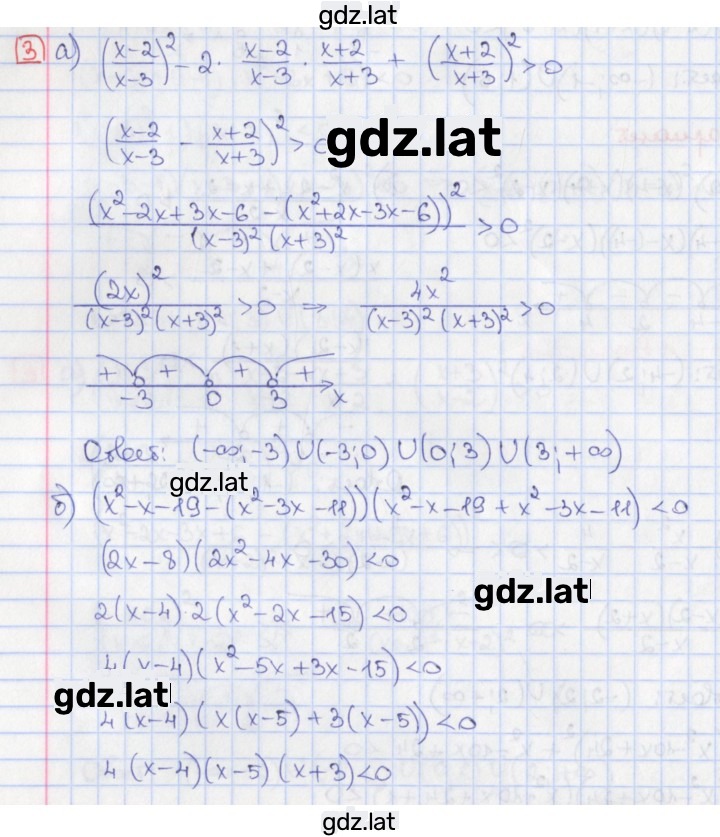 gdz.lat
3 а) ((x-2)/(x-3))² - 2 · (x-2)/(x-3) · (x+2)/(x+3) + ((x+2)/(x+3))² > 0
((x-2)/(x-3) - (x+2)/(x+3))² >
gdz.lat
(x²-2x+3x-6-(x²+2x-3x-6))² / (x-3)²(x+3)² > 0
(2x)² / (x-3)²(x+3)² > 0 ⇒ 4x² / (x-3)²(x+3)² > 0
+ + + +
-3 0 3 x
Ответ: (-∞;-3)∪(-3;0)∪(0;3)∪(3;+∞)
gdz.lat
б) (x²-x-19-(x²-3x-11))(x²-x-19+x²-3x-11)<0
(2x-8)(2x²-4x-30)<0
gdz.lat
2(x-4)·2(x²-2x-15)<0
4(x-4)(x²-5x+3x-15)<0
gdz.lat
4(x-4)(x(x-5)+3(x-5))<0
4(x-4)(x-5)(x+3)<0
gdz.lat